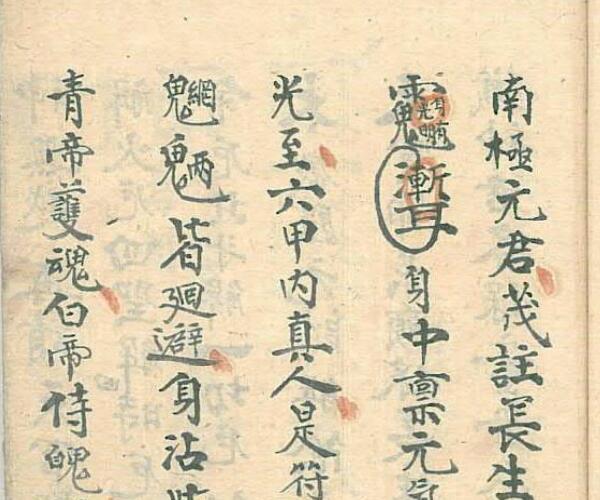 南極元君茂註長生
漸耳身中禀元氣
光至六甲內真人是符
魍魎皆廻避身沾
青帝護魂白帝侍魄